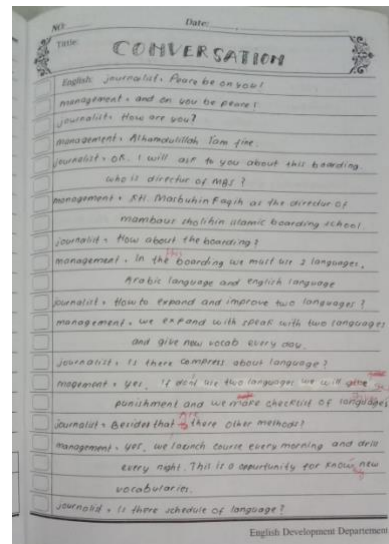 NO: Date:
Title:
CONVERSATION
English: journalist : Peace be on you!
management : and on you be peace!
journalist : How are you?
management : Alhamdulillah I am fine.
journalist : OK. I will ask to you about this boarding.
who is directur of MBS ?
management : KH. Masbuhin Faqih as the directur of
mambaus sholihin islamic boarding school
journalist : How about the boarding ?
management : In the boarding we must use 2 languages.
Arabic language and english language
journalist : How to expand and improve two languages ?
management : we expand with speak with two languages
and give new vocab every day.
journalist : Is there compress about language ?
magement : yes, if don't use two languages we will give
punishment and we make checklist of languages
journalist : Besides that is there other methods ?
management : yes, we launch course every morning and drill
every night. This is a opportunity for know new
vocabularies.
journalist : Is there schedule of language ?
English Development Departement